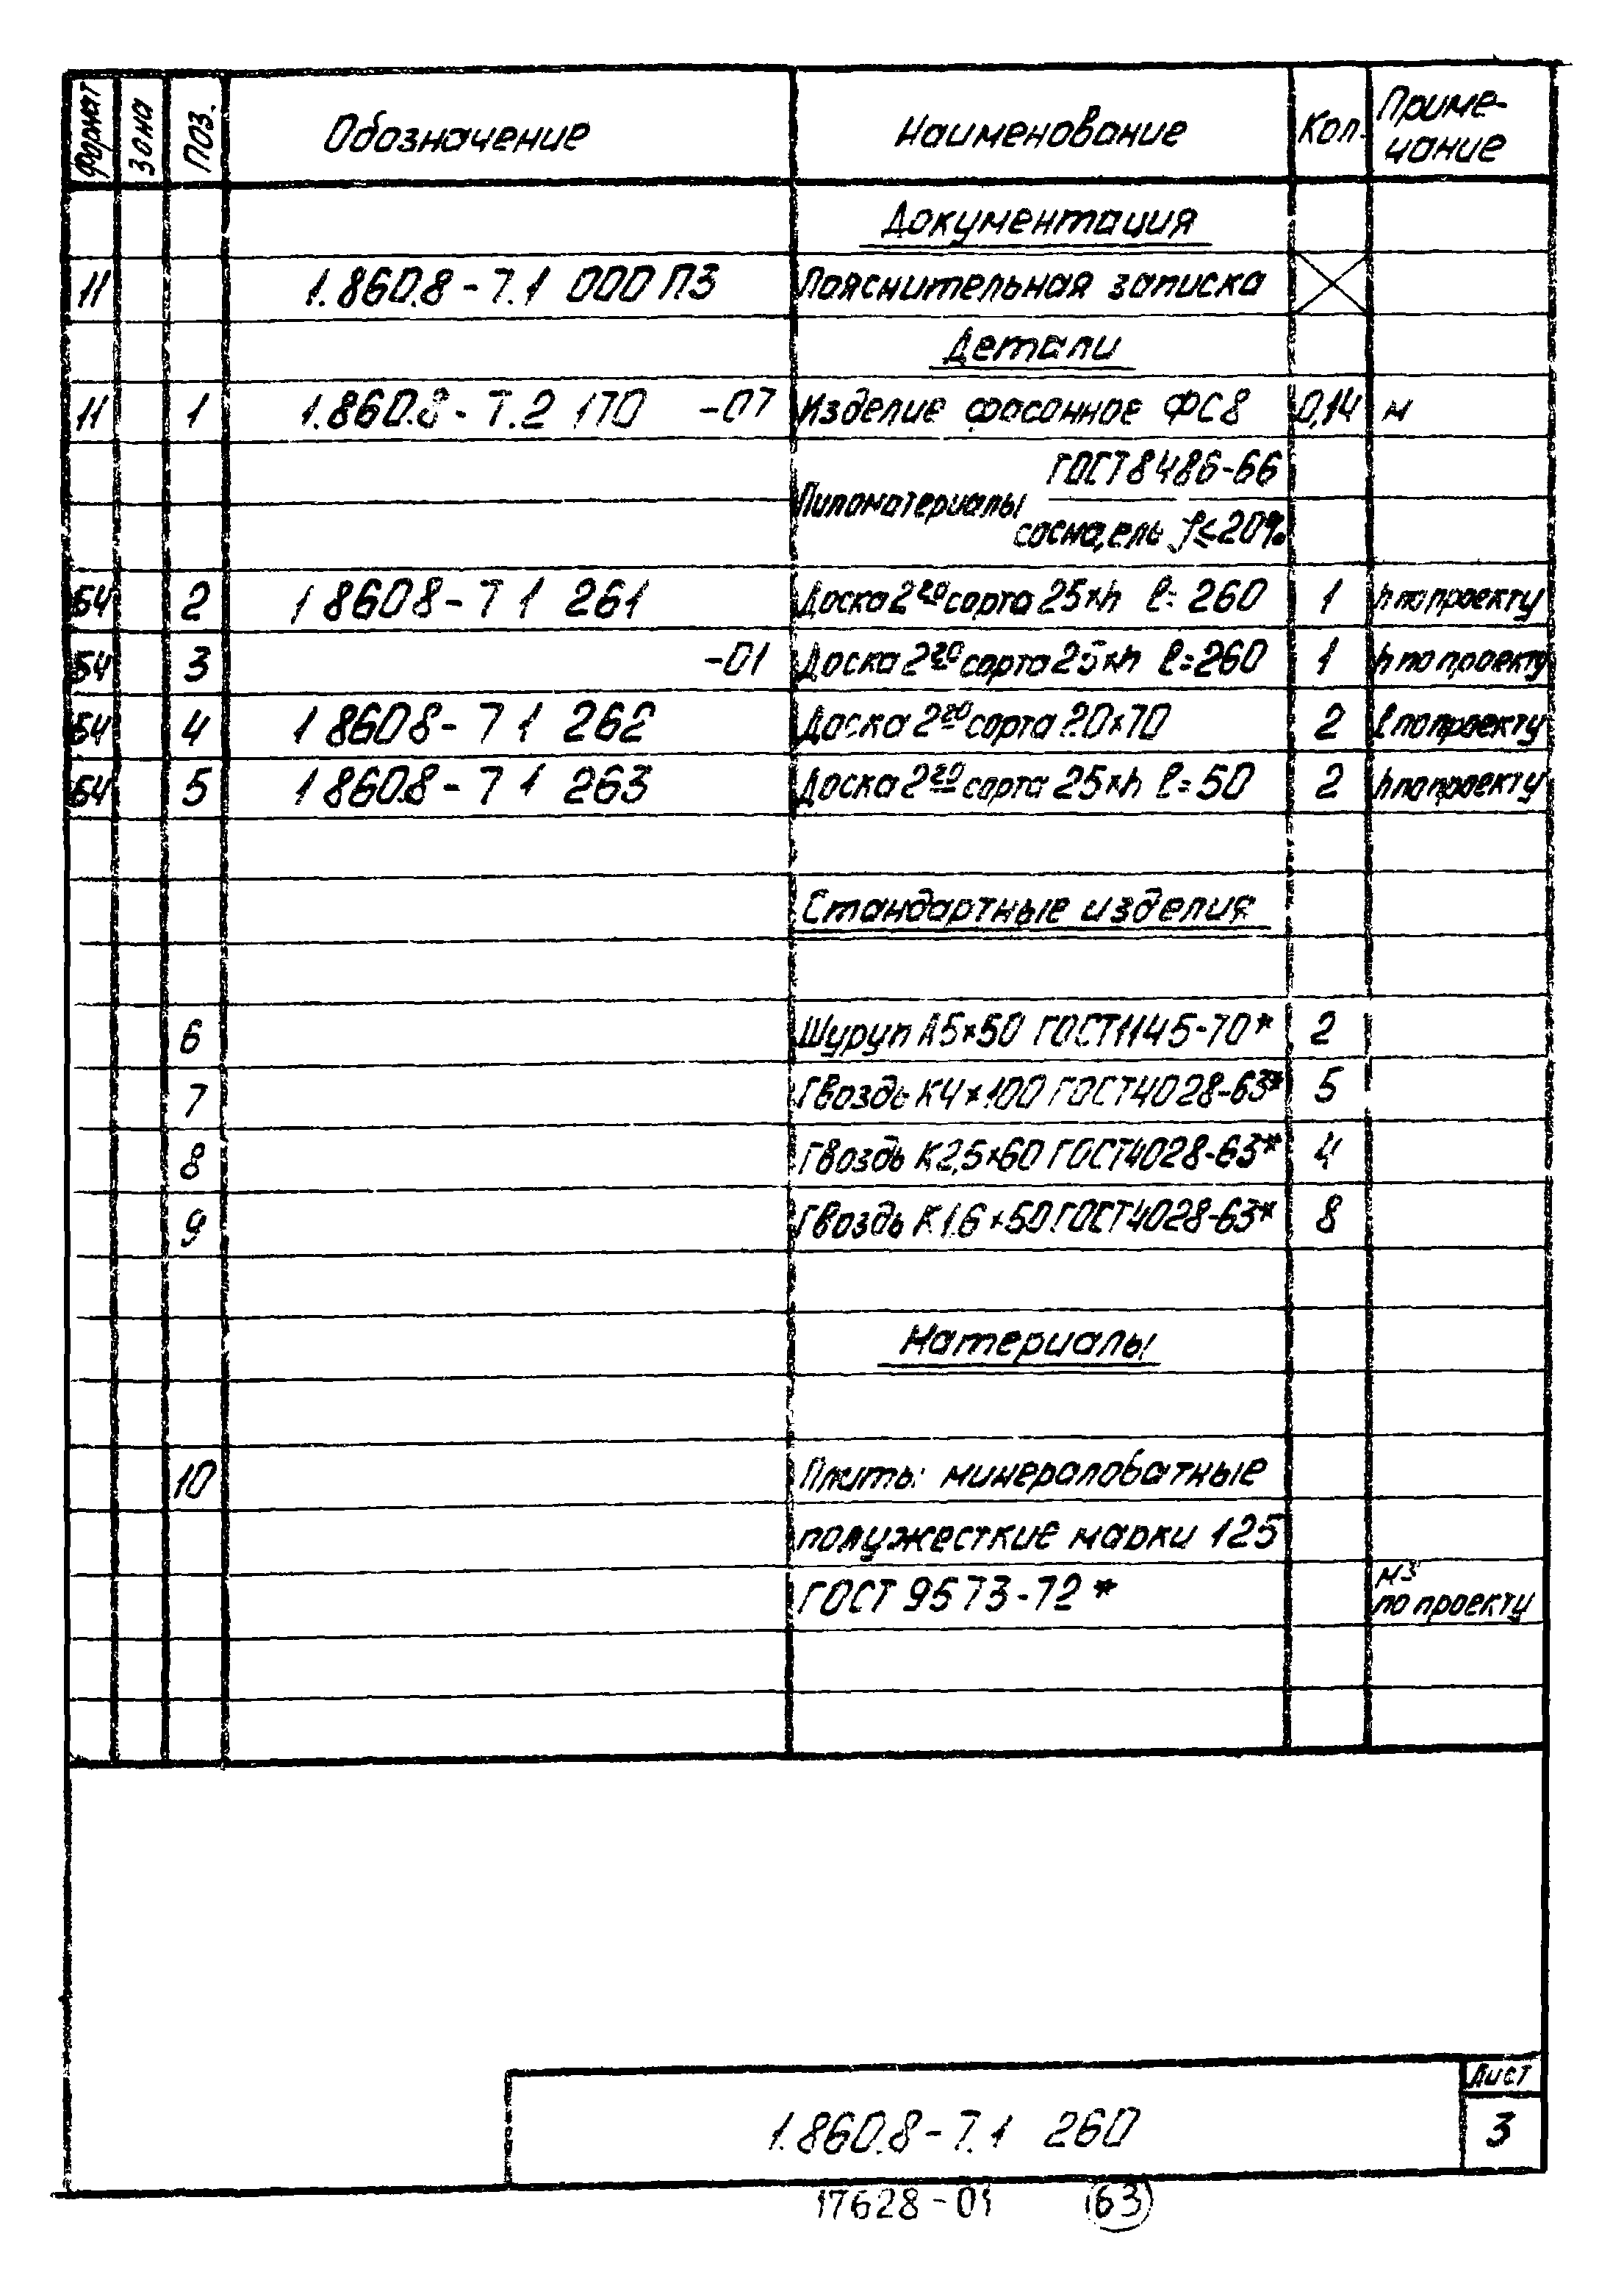 Формат Зона Поз. Обозначение Наименование Кол. Приме-
чание
Документация
11 1.860.8-7.1 000 ПЗ Пояснительная записка
Детали
11 1 1.860.8-7.2 170 -07 Изделие фасонное ФС8 0,14 м
ГОСТ 8486-66
Пиломатериалы
сосна, ель ≤20%
БЧ 2 1 8608-7 1 261 Доска 2го сорта 25×h ℓ=260 1 h по проекту
БЧ 3 -01 Доска 2го сорта 25×h ℓ=260 1 h по проекту
БЧ 4 1 8608-7 1 262 Доска 2го сорта 20×70 2 ℓ по проекту
БЧ 5 1 860.8-7 1 263 Доска 2го сорта 25×h ℓ=50 2 h по проекту
Стандартные изделия
6 Шуруп А5×50 ГОСТ 1145-70* 2
7 Гвоздь К4×100 ГОСТ 4028-63* 5
8 Гвоздь К2,5×60 ГОСТ 4028-63* 4
9 Гвоздь К1.6×50 ГОСТ 4028-63* 8
Материалы
10 Плиты минераловатные
полужесткие марки 125
ГОСТ 9573-72* м3
по проекту
Лист
1.860.8-7.1 260 3
17628-01 63